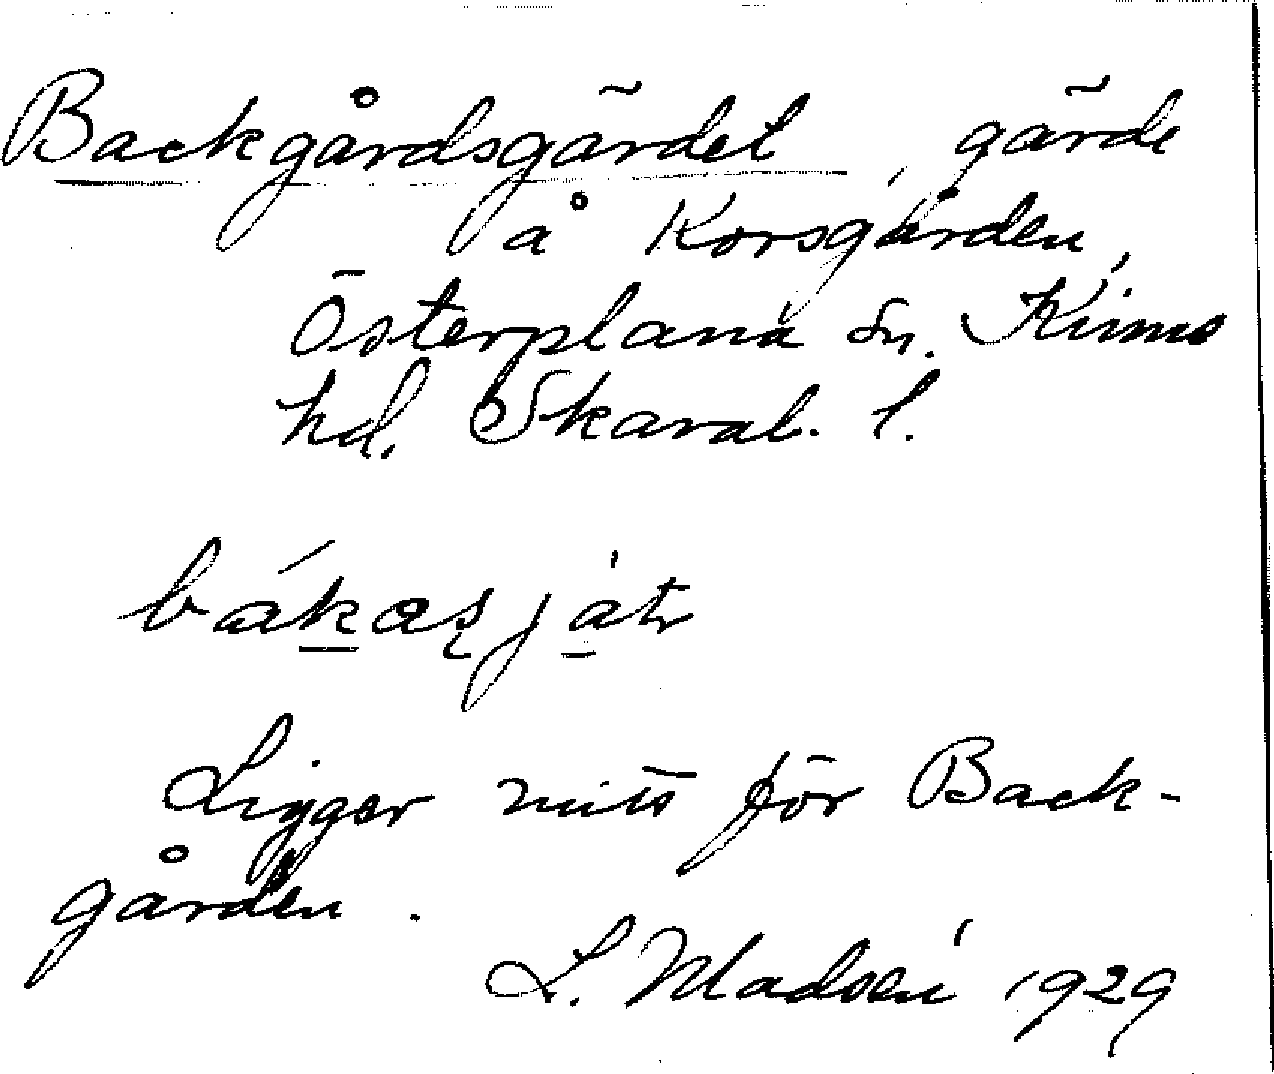 Backgårdsgärdet, gärde
å Korsgården,
Österplana sn. Kinne
hd. Skarab. l.
Ligger mitt för Back-
gården.
L. Madsén 1929